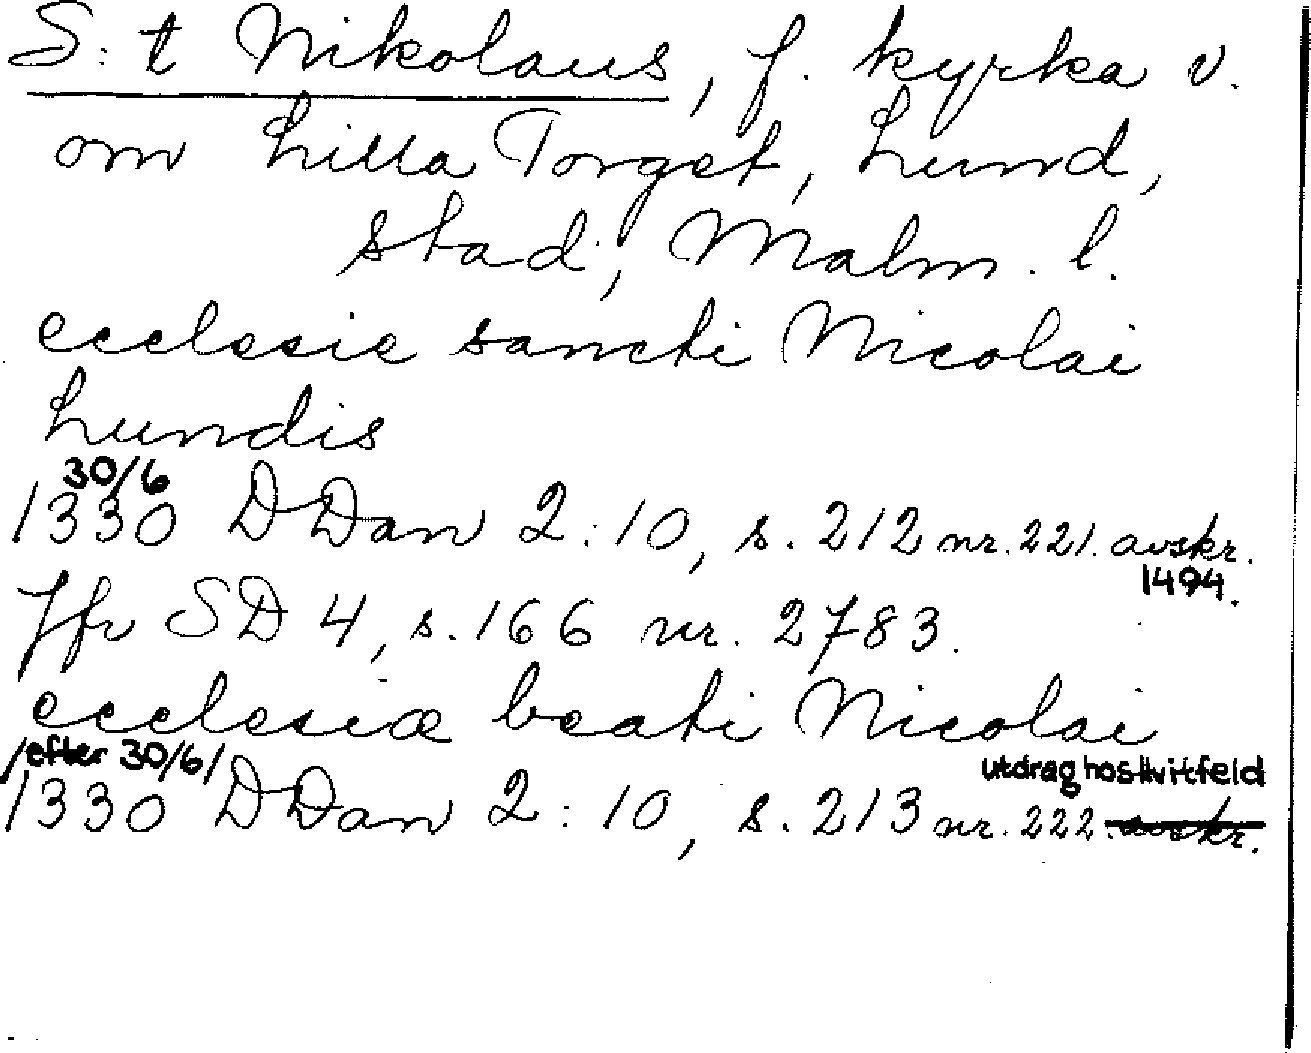 S:t Nikolaus, f. kyrka v.
om Lilla Torget, Lund,
stad, Malm. l.
ecclesie sancti Nicolai
Lundis
30/6
1330 DDan 2:10, s. 212 nr. 221. avskr.
1494.
Jfr SD 4, s. 166 nr. 2783.
ecclesiæ beati Nicolai
/efter 30/6/ utdrag hos Hvitfeld
1330 DDan 2:10, s. 213 nr. 222. avskr.